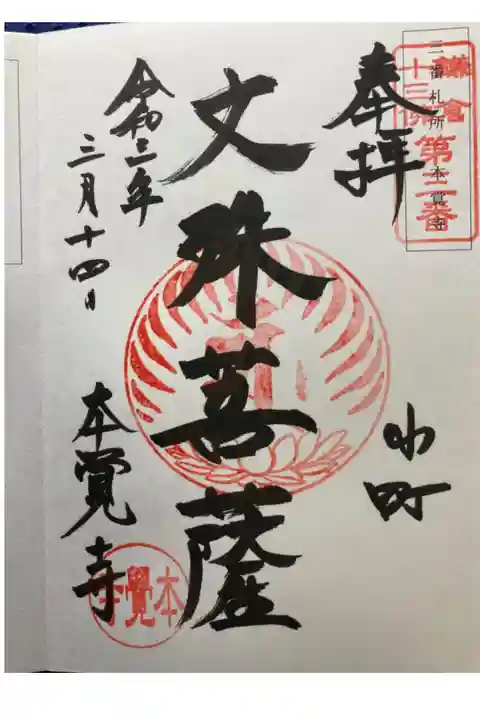 三番札所 本覚寺
鎌倉
十三佛
第三番
奉拝
小町
文殊菩薩
令和三年
三月十四日
本覚寺
本覺寺